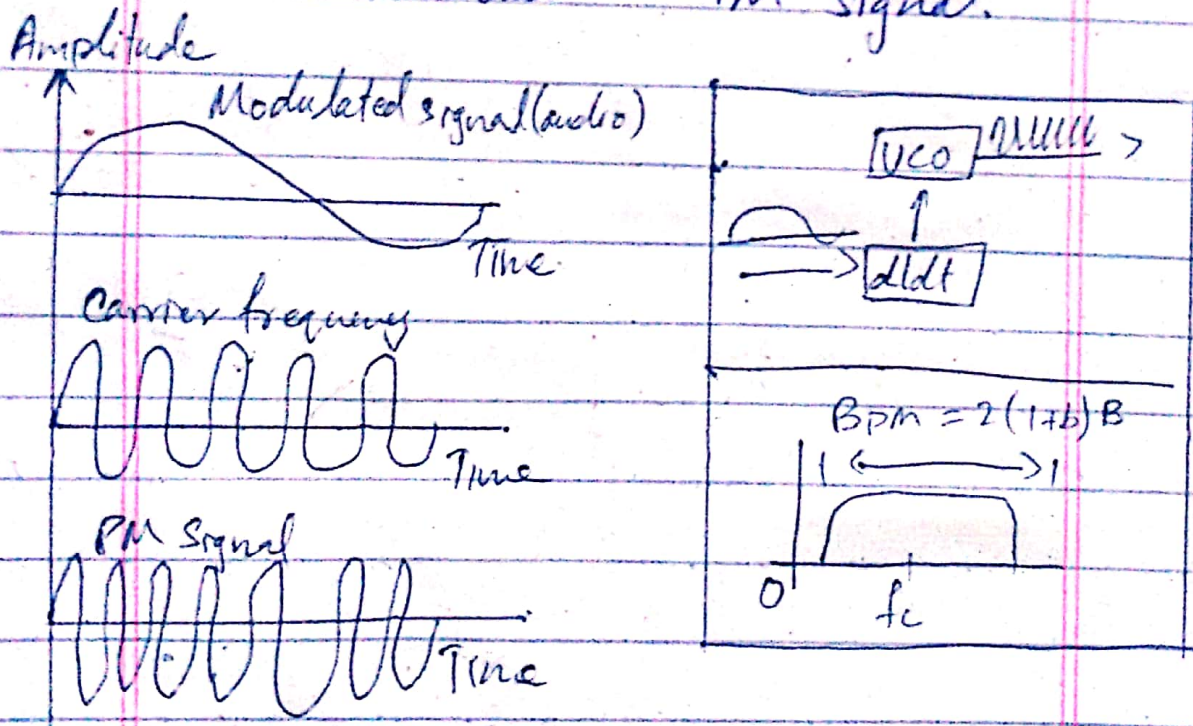 PM signal.
Amplitude
Modulated signal (audio)
Time
Carrier frequency
Time
PM Signal
Time
VCO
d/dt
BPM = 2(1+b)B
0
fc